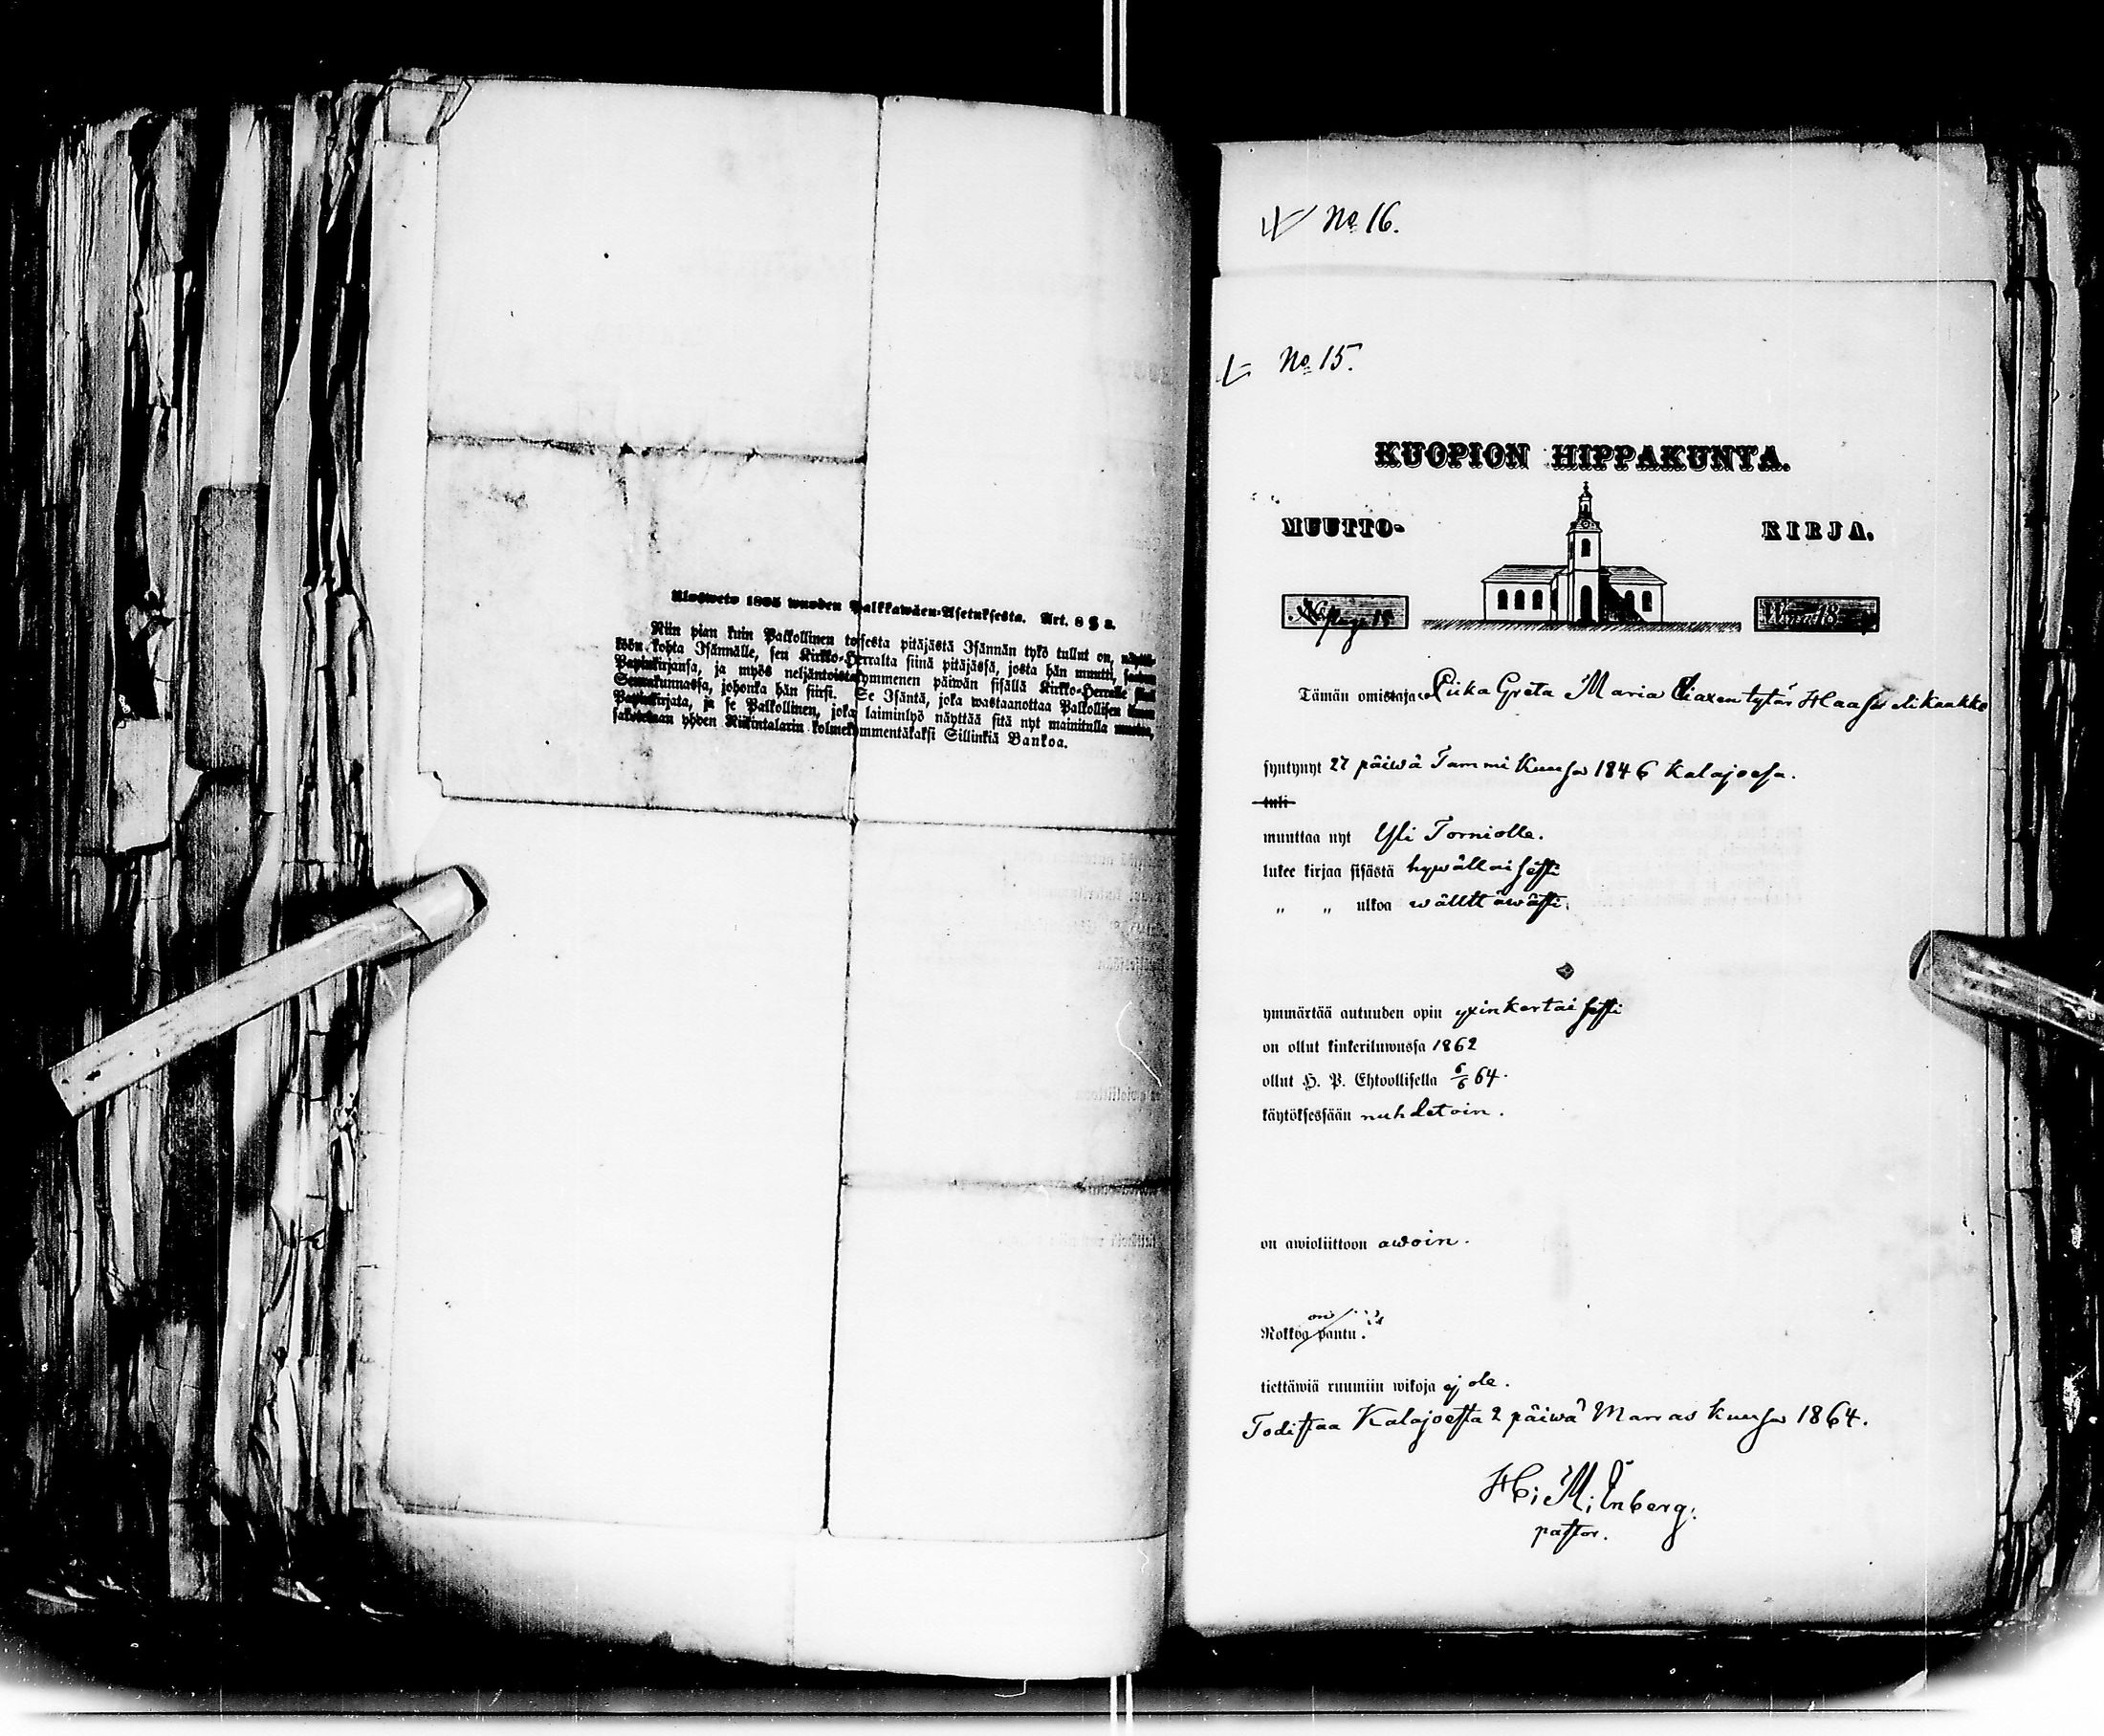 Ulosweto 1805 wuoden Palkkawäen-Asetuksesta. Art. 8 § 2.
Niin pian kuin Palkollinen toisesta pitäjästä Isännän tykö tullut on,
köön kohta Isännälle, sen Kirkko-Herralta siinä pitäjässä, josta hän muutti,
Papinkirjansa, ja myös neljäntoistakymmenen päiwän sisällä Kirkko-Herralle
Seurakunnassa, johonka hän siirsi. Se Isäntä, joka wastaanottaa Palkollisen
Papinkirjata, ja se Palkollinen, joka laiminlyö näyttää sitä nyt mainitulla
sakoitetaan yhden Riikintalarin kolmekymmentäkaksi Sillinkiä Bankoa.
No 16.
No 15.
KUOPION HIPPAKUNTA.
MUUTTO- KIRJA.
Tämän omistaja Piika Greta Maria
syntynyt 27 päiwä Tammi Kuusa 1846 Kalajoesa.
tuli
muuttaa nyt Yli Torniolle.
lukee kirjaa sisästä hywällaisesti
„ „ ulkoa wälttäwästi
ymmärtää autuuden opin yxinkertaisesti
on ollut kinkeriluwussa 1862
ollut H. P. Ehtoollisella 6/6 64.
käytöksessään nuhdetoin.
on awioliittoon awoin.
on
Rokkoa pantu.
tiettäwiä ruumiin wikoja ej ole.
Todistaa Kalajoesta 2 päiwä Marras kuusa 1864.
pastor.